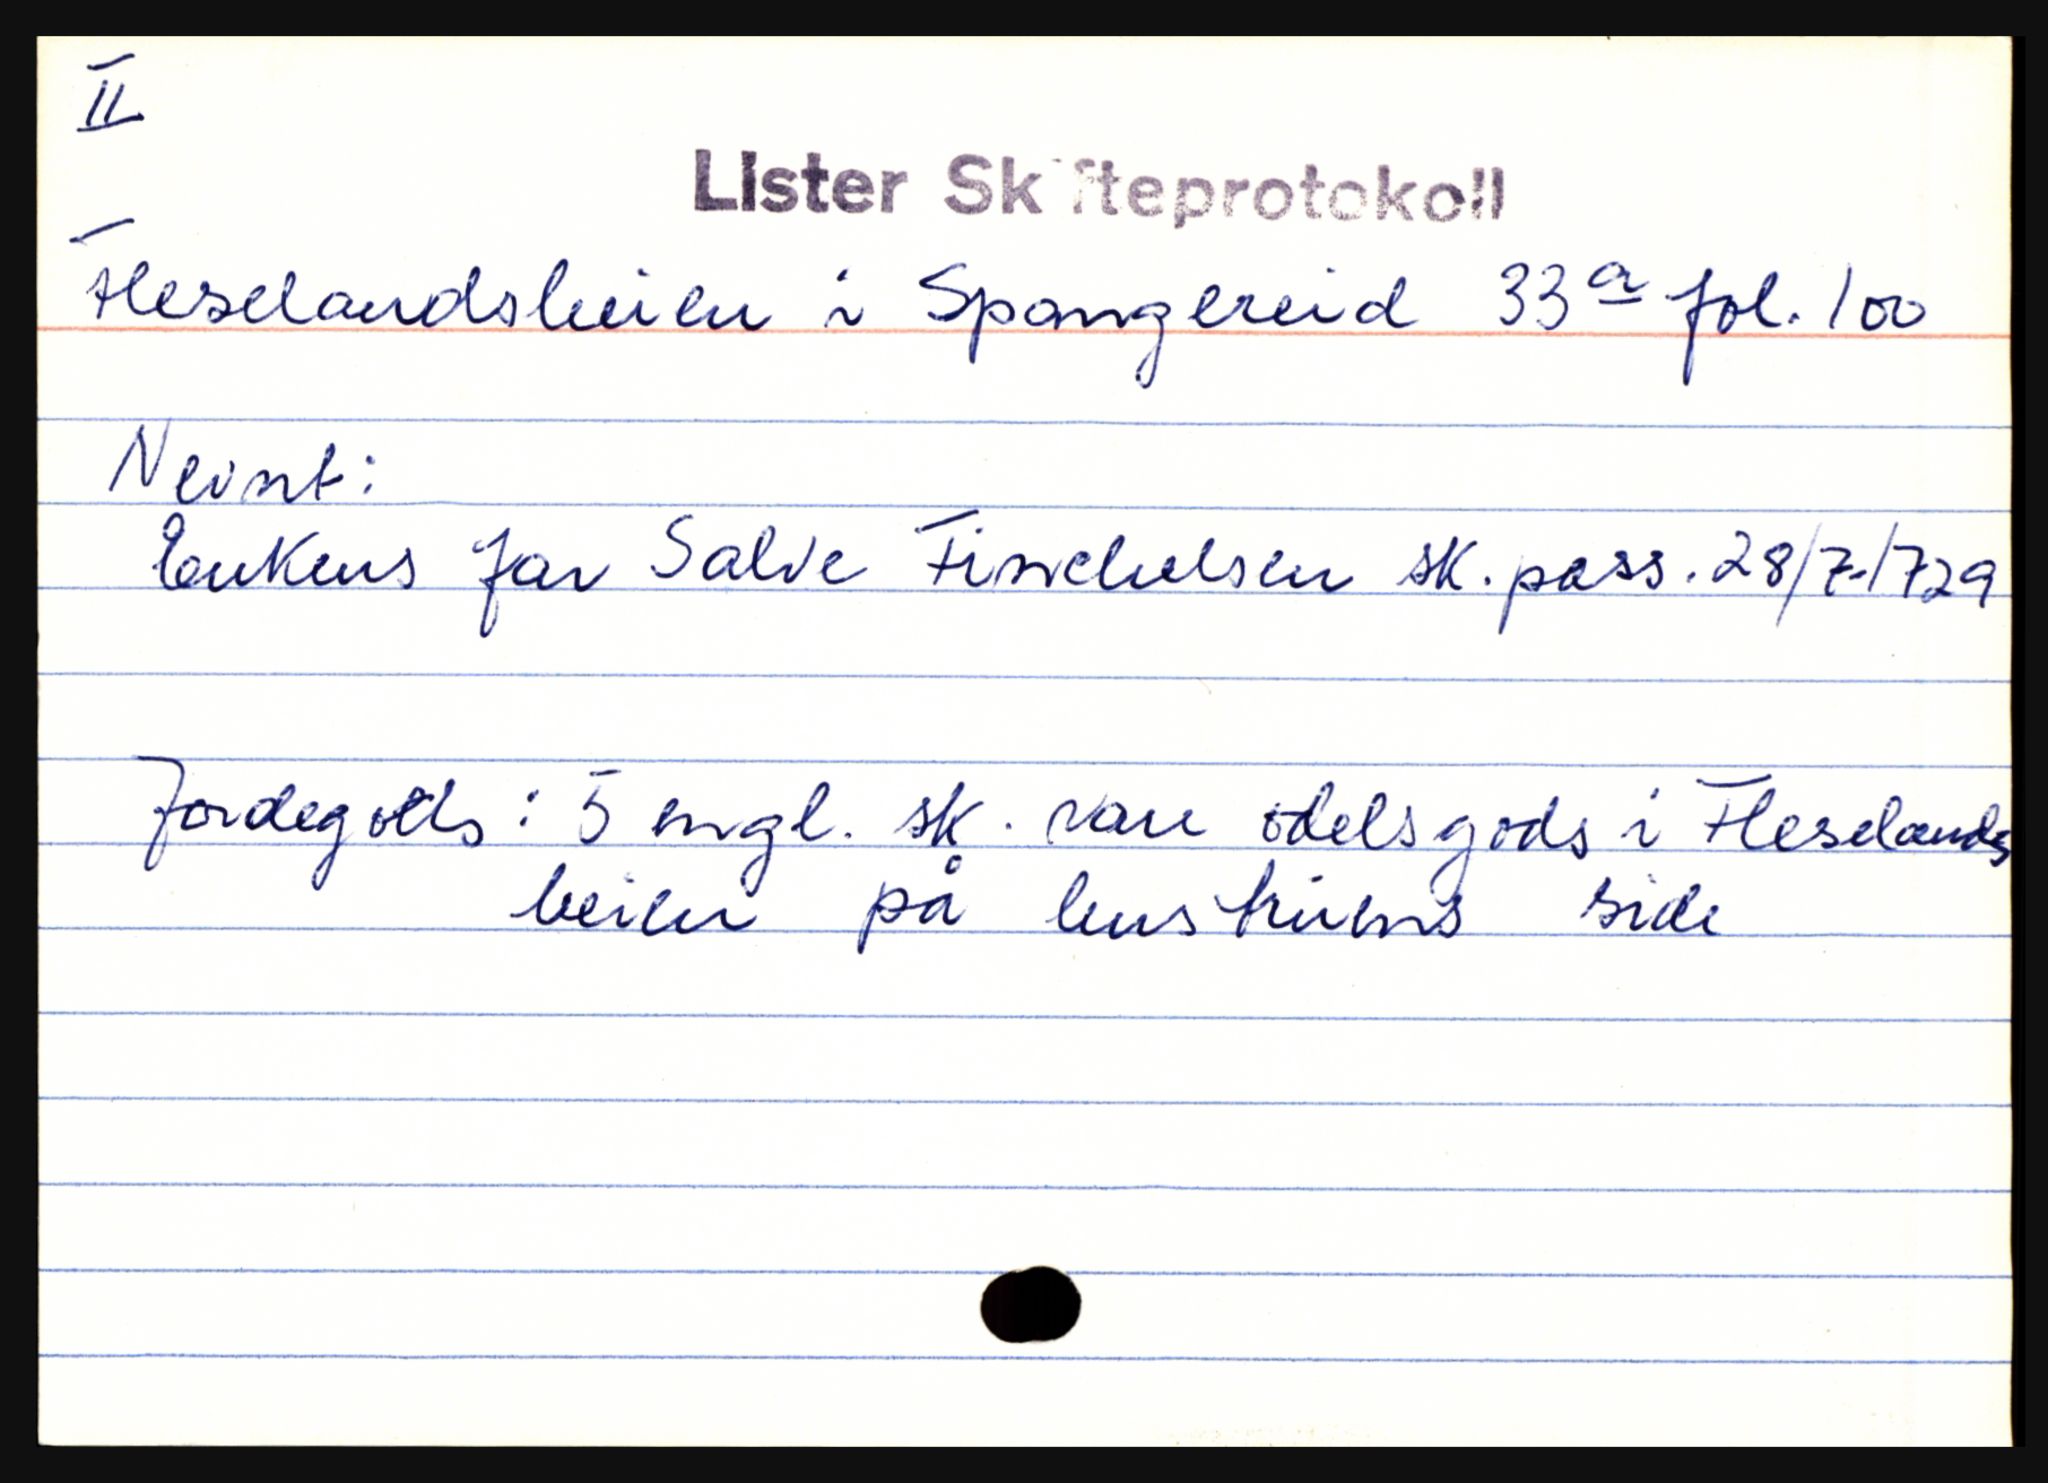 II
Lister Skifteprotokoll
Fleselandsheien i Spangereid 33a fol. 100
Nevnt:
Enkens far Salve Finchelsen sk. pass. 28/7-1729
Jordegods: 5 engl. sk. rau odelsgods i Fleselands
heien på hustruens side